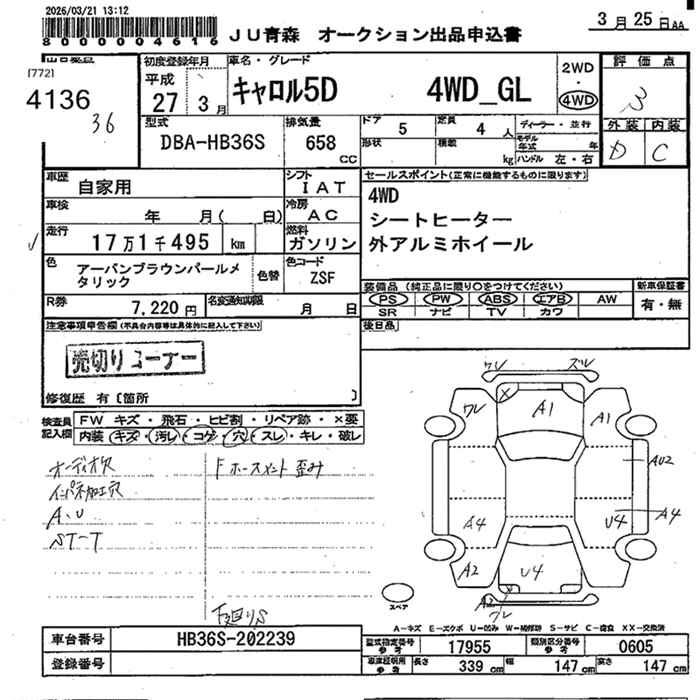 2026/03/21 13:12
8000004616
JU青森 オークション出品申込書
3月25日AA
[772]
4136
36
初度登録年月
平成
27 3月
車名・グレード
キャロル5D 4WD_GL
2WD
・
4WD
評価点
3
外装 内装
D C
型式
DBA-HB36S
排気量
658
CC
ドア 5
定員 4人
ディーラー・並行
形状
積載 kg
モデル年式 年
ハンドル 左・右
車歴
自家用
シフト
IAT
セールスポイント(正常に機能するものに限ります)
4WD
シートヒーター
外アルミホイール
車検
年 月( 日)
冷房
AC
走行
17万1千495 km
燃料
ガソリン
色
アーバンブラウンパールメタリック
色替
色コード
ZSF
装備品 (純正品に限り○をつけてください)
PS PW ABS エアB AW
SR ナビ TV カワ
新車保証書
有・無
R券
7,220円
名変通知期限
月 日
後日品
注意事項申告欄(不具合内容等は具体的に記入して下さい)
売切りコーナー
修復歴 有〔箇所 〕
検査員記入欄
FW キズ・飛石・ヒビ割・リペア跡・×要
内装 キズ・汚レ・コゲ・穴・スレ・キレ・破レ
オーディオ欠
インパネ加工穴
A、U
ST-T
Fホースメント歪み
下廻りS
ワレ
ズレ
ワレ
X
A1
A1
AU2
A4
U4
A4
A2
U4
A2
ワレ
スペア
A−キズ E−エクボ U−凹み W−補修跡 S−サビ C−腐食 XX−交換済
車台番号
HB36S-202239
登録番号
型式指定番号参考
17955
類別区分番号参考
0605
車庫証明用参考
長さ 339 cm
幅 147 cm
高さ 147 cm